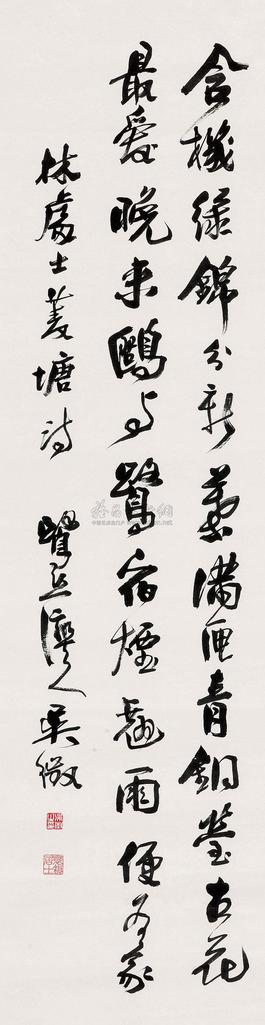 含機綠錦分新葉滿匣青銅瑩古花
最愛晚來鷗与鷺宿煙翹雨便為家
林處士菱塘詩 鷺丝灣人吳徵